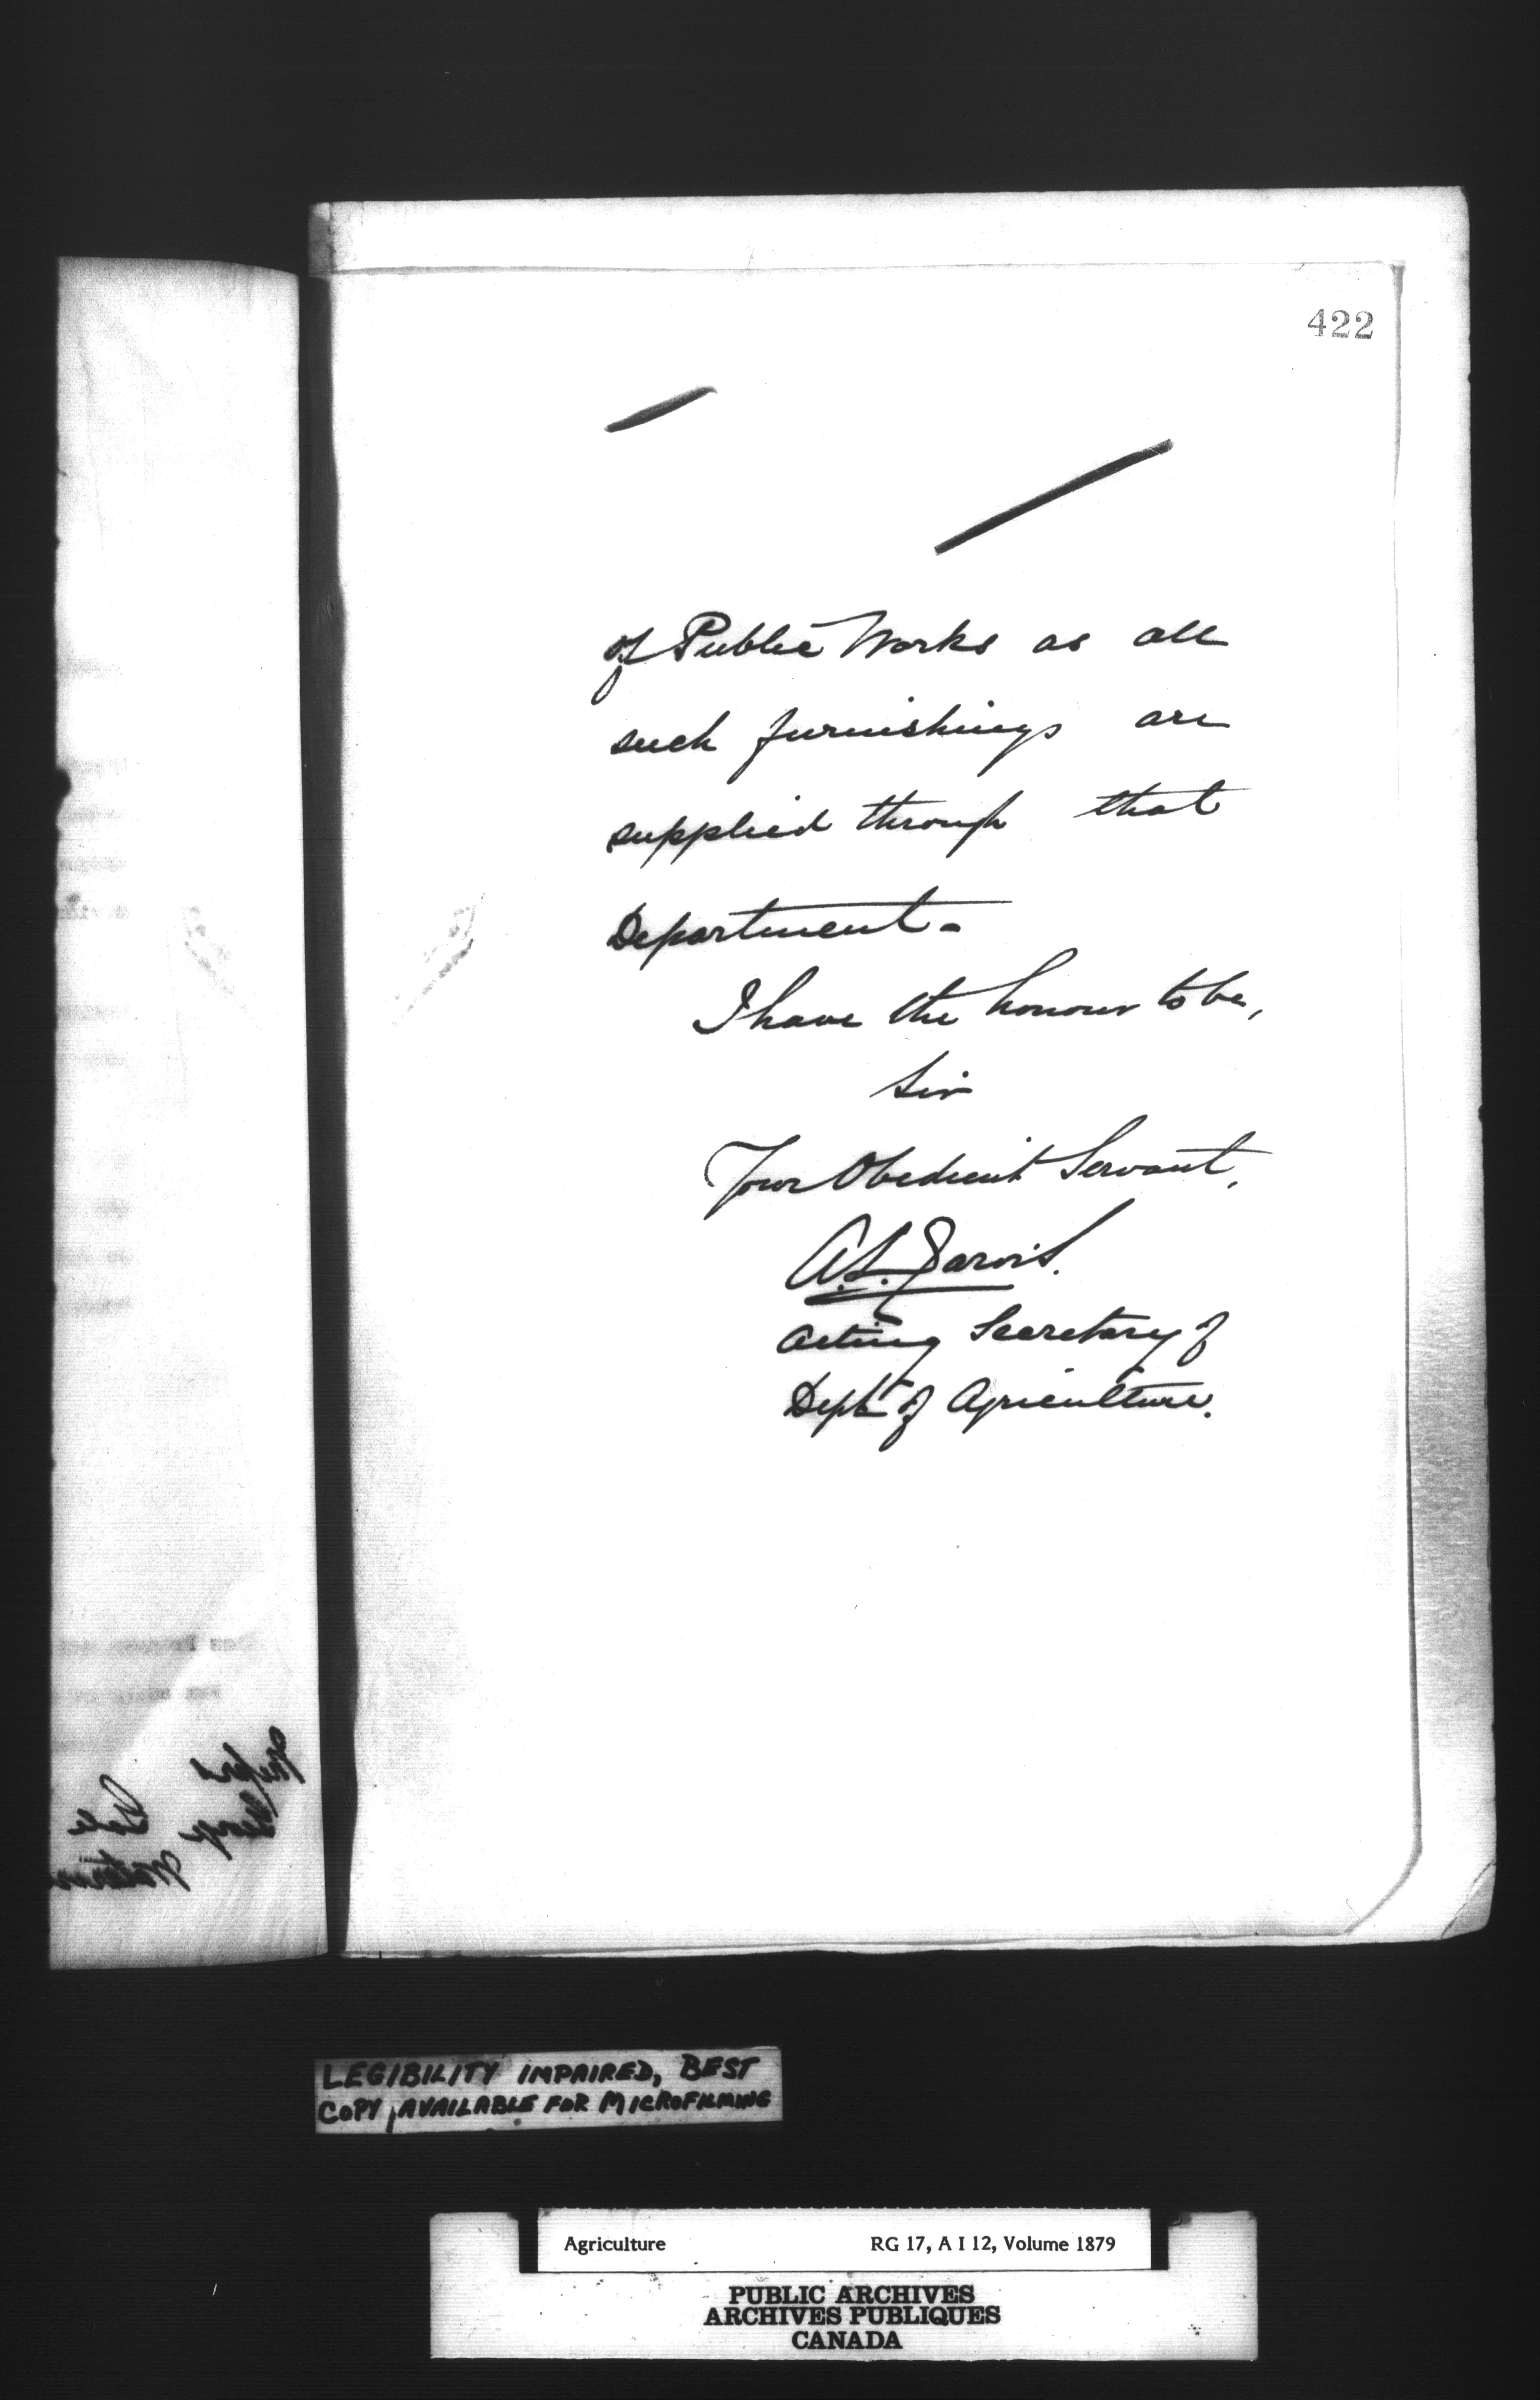 422
of Public Works as all
such furnishings are
supplied through that
Department.
I have the honour to be,
Sir
Your Obedient Servant,
A.L. Jarvis.
Acting Secretary of
Dept of Agriculture.
LEGIBILITY IMPAIRED, BEST
COPY AVAILABLE FOR MICROFILMING
Agriculture RG 17, A I 12, Volume 1879
PUBLIC ARCHIVES
ARCHIVES PUBLIQUES
CANADA